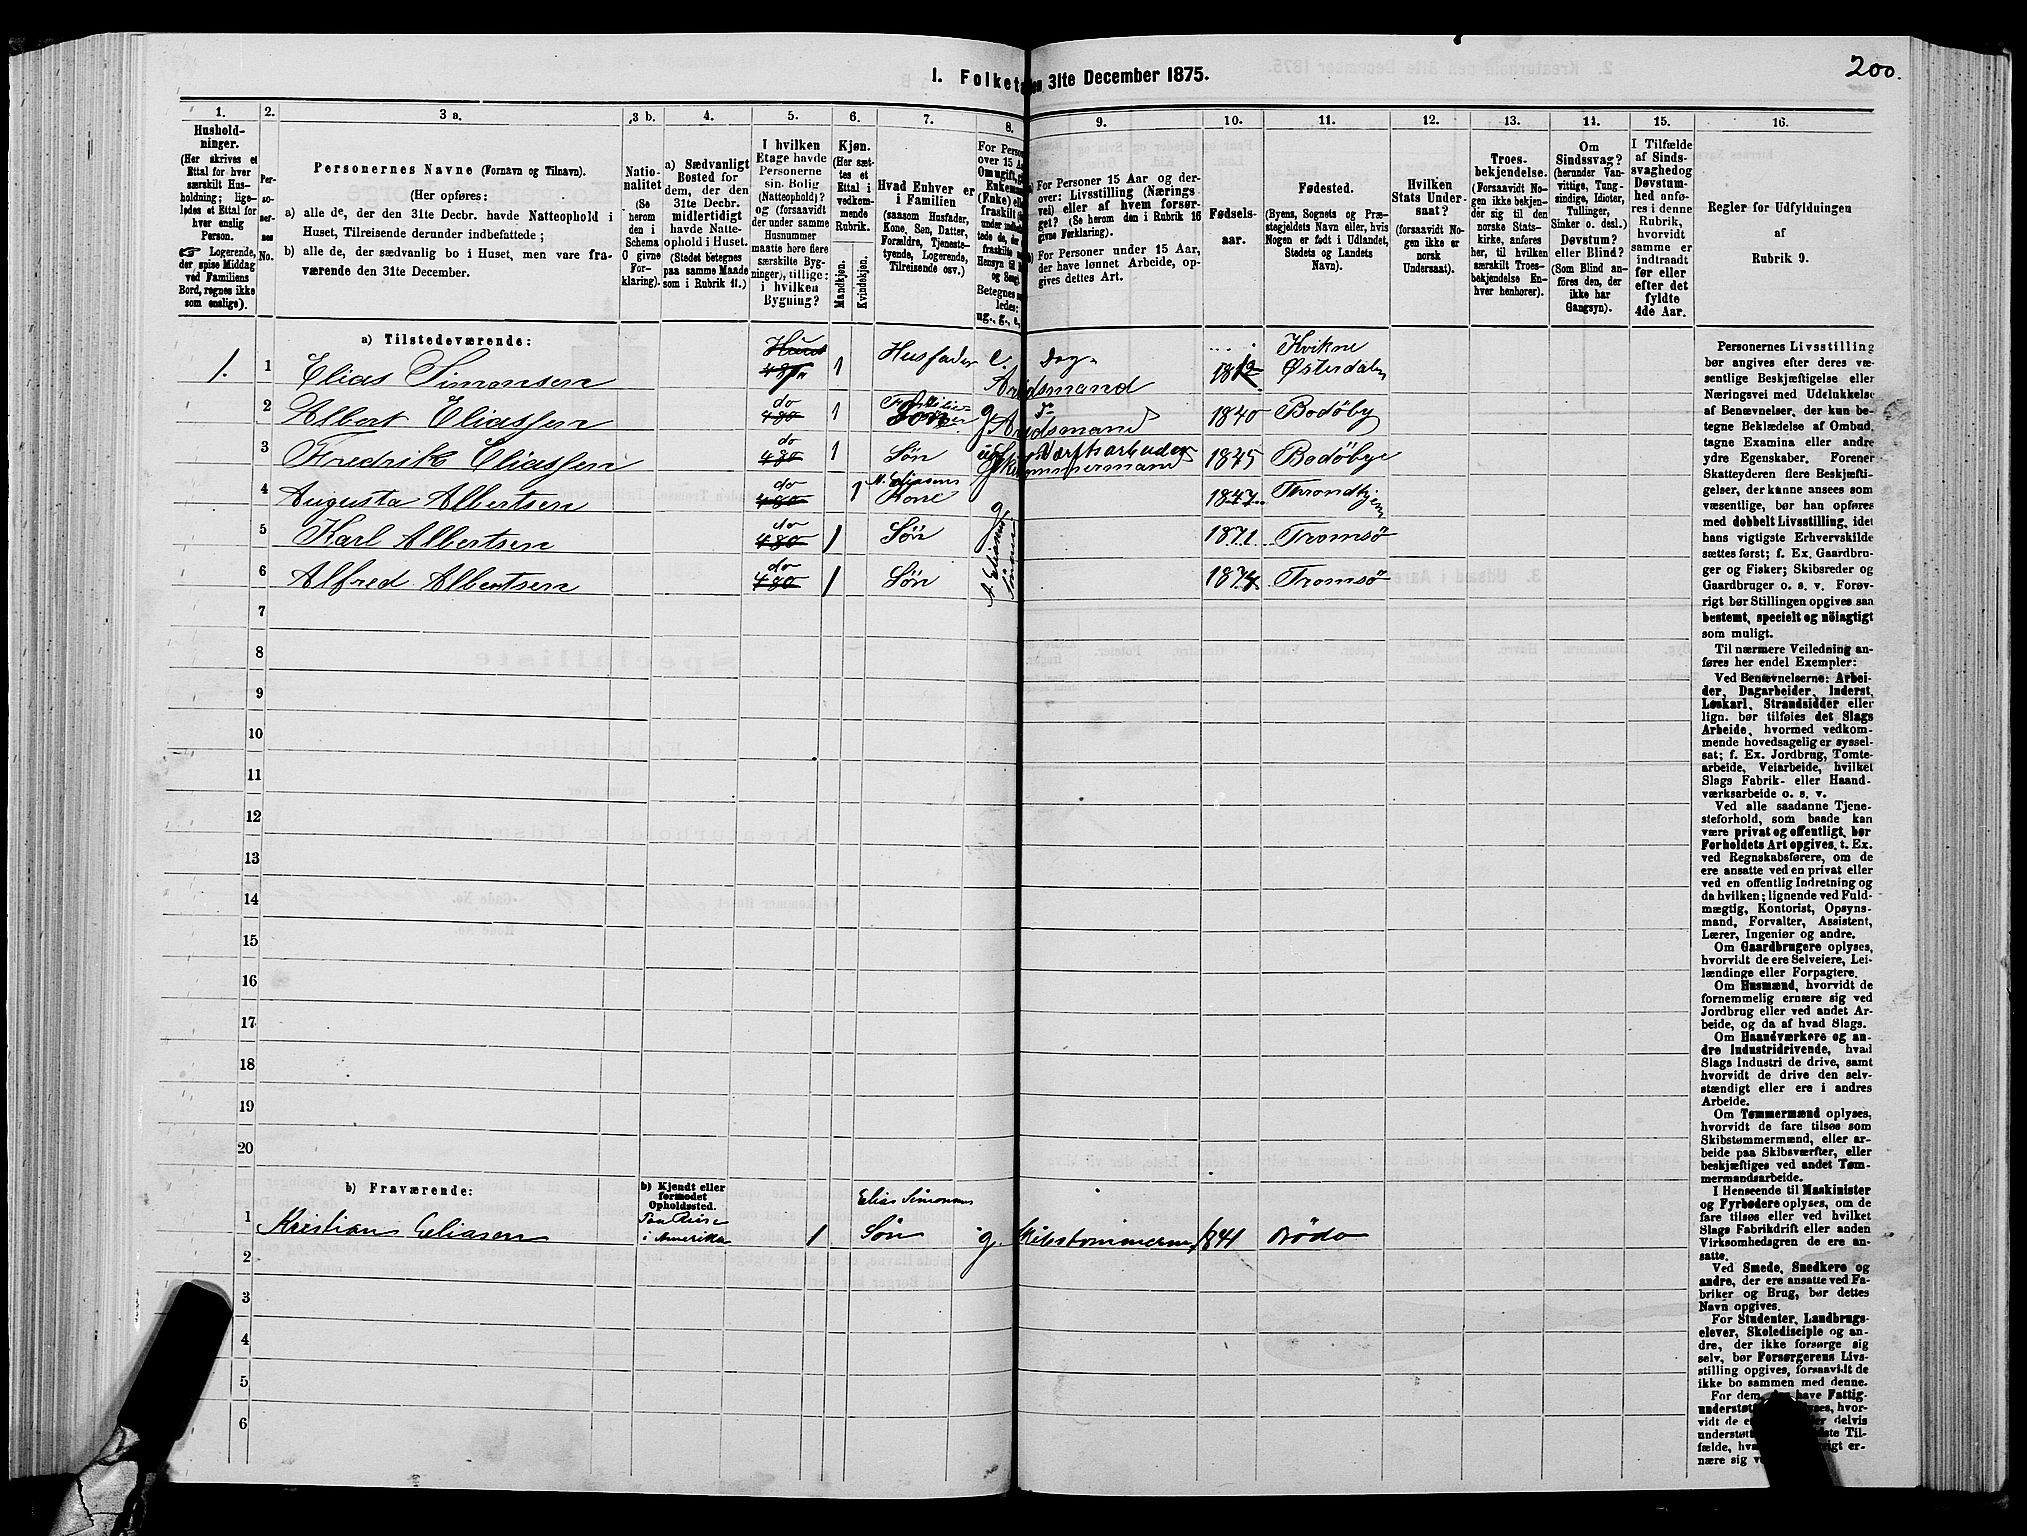 200.
1. Folketa
en 31te December 1875.
1.
2.
3 a.
3 b.
4.
5.
6.
7.
8.
9.
10.
11.
12.
13.
14.
15.
16.
Hushold-
ninger.
(Her skrives et
Ettal for hver
særskilt Hus-
holdning; lige-
ledes et Ettal for
hver enslig
Person.
☞ Logerende,
der spise Middag
ved Familiens
Bord, regnes ikke
som enslige).
Per-
so-
ner-
nes
No.
Personernes Navne (Fornavn og Tilnavn).
(Her opføres:
a) alle de, der den 31te Decbr. havde Natteophold i
Huset, Tilreisende derunder indbefattede;
b) alle de, der sædvanlig bo i Huset, men vare fra-
værende den 31te December.
Natio-
nalitet
(Se
herom
den i
Schema
O givne
For-
klaring).
a) Sædvanligt
Bosted for
dem, der den
31te Decbr.
midlertidigt
havde Natte-
ophold i Huset.
(Stedet betegnes
paa samme Maade
som i Rubrik 11.)
I hvilken
Etage havde
Personerne
sin Bolig
(Natteophold)?
og (forsaavidt
der under samme
Husnummer
maatte høre flere
særskilte Byg-
ninger), tillige:
i hvilken
Bygning?
Kjøn.
(Her sæt-
tes et
Ettal i
vedkom-
mende
Rubrik.
Mandkjøn.
Kvindekjøn.
Hvad Enhver er
i Familien
(saasom Husfader,
Kone, Søn, Datter,
Forældre, Tjeneste-
tyende, Logerende,
Tilreisende osv.)
For Person
over 15 Aa
Om ugift, gif
Enkeman
(Enke) elle
fraskilt
Betegnes
ledes:
ug., g., e.,
For Personer 15 Aar og der-
over: Livsstilling (Nærings
vei) eller af hvem forsør-
get? (Se herom den i Rubrik 16
givne Forklaring).
For Personer under 15 Aar,
der have lønnet Arbeide, op-
gives dettes Art.
Fødsels-
aar.
Fødested.
(Byens, Sognets og Præ-
stegjeldets Navn eller, hvis
Nogen er født i Udlandet,
Stedets og Landets
Navn).
Hvilken
Stats Under-
saat?
(forsaavidt No-
gen ikke er
norsk
Undersaat).
Troes-
bekjendelse.
(Forsaavidt No-
gen ikke bekjen-
der sig til den
norske Stats-
kirke, anføres
her, til hvilken
særskilt Troes-
bekjendelse En-
hver henhører).
Om
Sindssvag?
(herunder Van-
vittige, Tung-
sindige, Idioter,
Tullinger,
Sinker o. desl.)
Døvstum?
eller Blind?
(Som Blind an-
føres den, der
ikke har
Gangsyn).
I Tilfælde
af Sinds-
svaghed og
Døvstum-
hed anfø-
res i denne
Rubrik,
hvorvidt
samme er
indtraadt
før eller
efter det
fyldte
4de Aar.
Regler for Udfyldningen
af
Rubrik 9.
a) Tilstedeværende:
1. 1 Elias Simonsen 1 Husfader e. Dag- Arbdsmand 1812 Kvikne Østerdalen
2 Albert Eliassen do 480 1 Søn g do Arbdsmand 1840 Bodøby
3 Fredrik Eliassen do 480 1 Søn ug Værftsarbeider 1845 Bodøbye
4 Augusta Albertsen do 480 1 A. Eliasens Kone g 1847 Throndhjem
5 Karl Albertsen do 480 1 Søn A Eliasens Sønner 1871 Tromsø
6 Alfred Albertsen do 480 1 Søn 1874 Tromsø
7
8
9
10
11
12
13
14
15
16
17
18
19
20
b) Fraværende:
b) Kjendt eller
formodet
Opholdssted.
1 Kristian Eliasen Paa Reise i Amerika 1 Elias Simonsens Søn g. Skibstømmerm 1841 Bodø
2
3
4
5
6
Personernes Livsstilling
bør angives efter deres væ-
sentlige Beskjæftigelse eller
Næringsvei med Udelukkelse
af Benævnelser, der kun be-
tegne Beklædelse af Ombud,
tagne Examina eller andre
ydre Egenskaber. Forener
Skatteyderen flere Beskjæfti-
gelser, der kunne ansees som
væsentlige, bør han opføres
med dobbelt Livsstilling, idet
hans vigtigste Erhvervskilde
sættes først; f. Ex. Gaardbru-
ger og Fisker; Skibsreder og
Gaardbruger o. s. v. Forøv-
rigt bør Stillingen opgives saa
bestemt, specielt og nöiagtigt
som muligt.
Til nærmere Veiledning an-
føres her endel Exempler:
Ved Benævnelserne: Arbei-
der, Dagarbeider, Inderst,
Løskarl, Strandsidder eller
lign. bør tilføies det Slags
Arbeide, hvormed vedkom-
mende hovedsagelig er syssel-
sat; f. Ex. Jordbrug, Tomte-
arbeide, Veiarbeide, hvilket
Slags Fabrik- eller Haand-
værksarbeide o. s. v.
Ved alle saadanne Tjene-
steforhold, som baade kan
være privat og offentligt, bør
Forholdets Art opgives, t. Ex.
ved Regnskabsførere, om de
ere ansatte ved en privat eller
ved en offentlig Indretning og
da hvilken; lignende ved Fuld-
mægtig, Kontorist, Opsyns-
mand, Forvalter, Assistent,
Lærer, Ingeniør og andre.
Om Gaardbrugere oplyses,
hvorvidt de ere Selveiere, Lei-
lændinge eller Forpagtere.
Om Husmænd, hvorvidt de
fornemmelig ernære sig ved
Jordbrug eller ved andet Ar-
beide, og da af hvad Slags.
Om Haandværkere og an-
dre Industridrivende, hvad
Slags Industri de drive, samt
hvorvidt de drive den selv-
stændigt eller ere i andres
Arbeide.
Om Tømmermænd oplyses,
hvorvidt de fare tilsøs som
Skibstømmermænd, eller ar-
beide paa Skibsværfter, eller
beskjæftiges ved andet Tøm-
mermandsarbeide.
I Henseende til Maskinister
og Fyrbødere oplyses, om de
fare tilsøs eller ved hvilket
Slags Fabrikdrift eller anden
Virksomhedsgren de ere an-
satte.
Ved Smede, Snedkere og
andre, der ere ansatte ved Fa-
briker og Brug, bør dettes
Navn opgives.
For Studenter, Landbrugs-
elever, Skoledisciple og an-
dre, der ikke forsørge sig
selv, bør Forsørgerens Livs-
stilling opgives, forsaavidt de
ikke bo sammen med denne.
For dem have Fattig-
understøt hvor-
vidt de delvis
understøt Til-
fælde, er-
nære sig